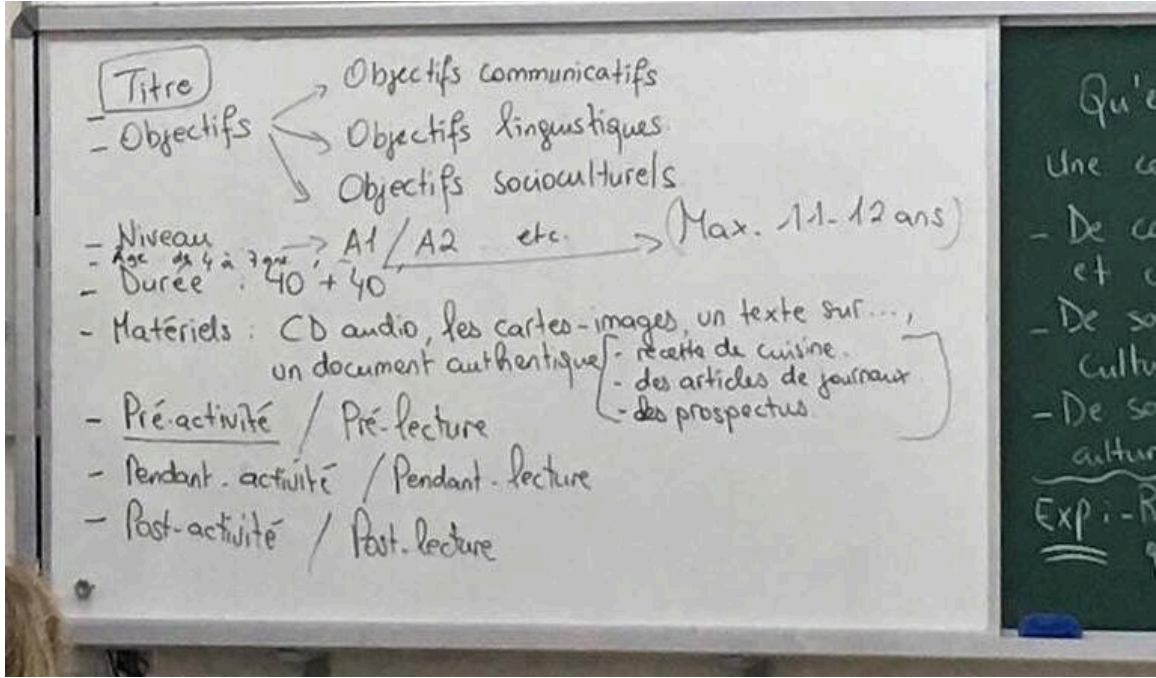 Titre
- Objectifs
Objectifs communicatifs
Objectifs linguistiques
Objectifs socioculturels
- Niveau → A1 / A2 etc. → (Max. 11-12 ans)
- Age de 4 à 7 ans
- Durée : 40 + 40
- Matériels : CD audio, les cartes-images, un texte sur...,
un document authentique - recette de cuisine.
- des articles de journaux
- des prospectus
- Pré-activité / Pré-lecture
- Pendant-activité / Pendant-lecture
- Post-activité / Post-lecture
Qu'e
Une co
- De co
et c
- De so
Cultu
- De so
cultur
Exp :- R